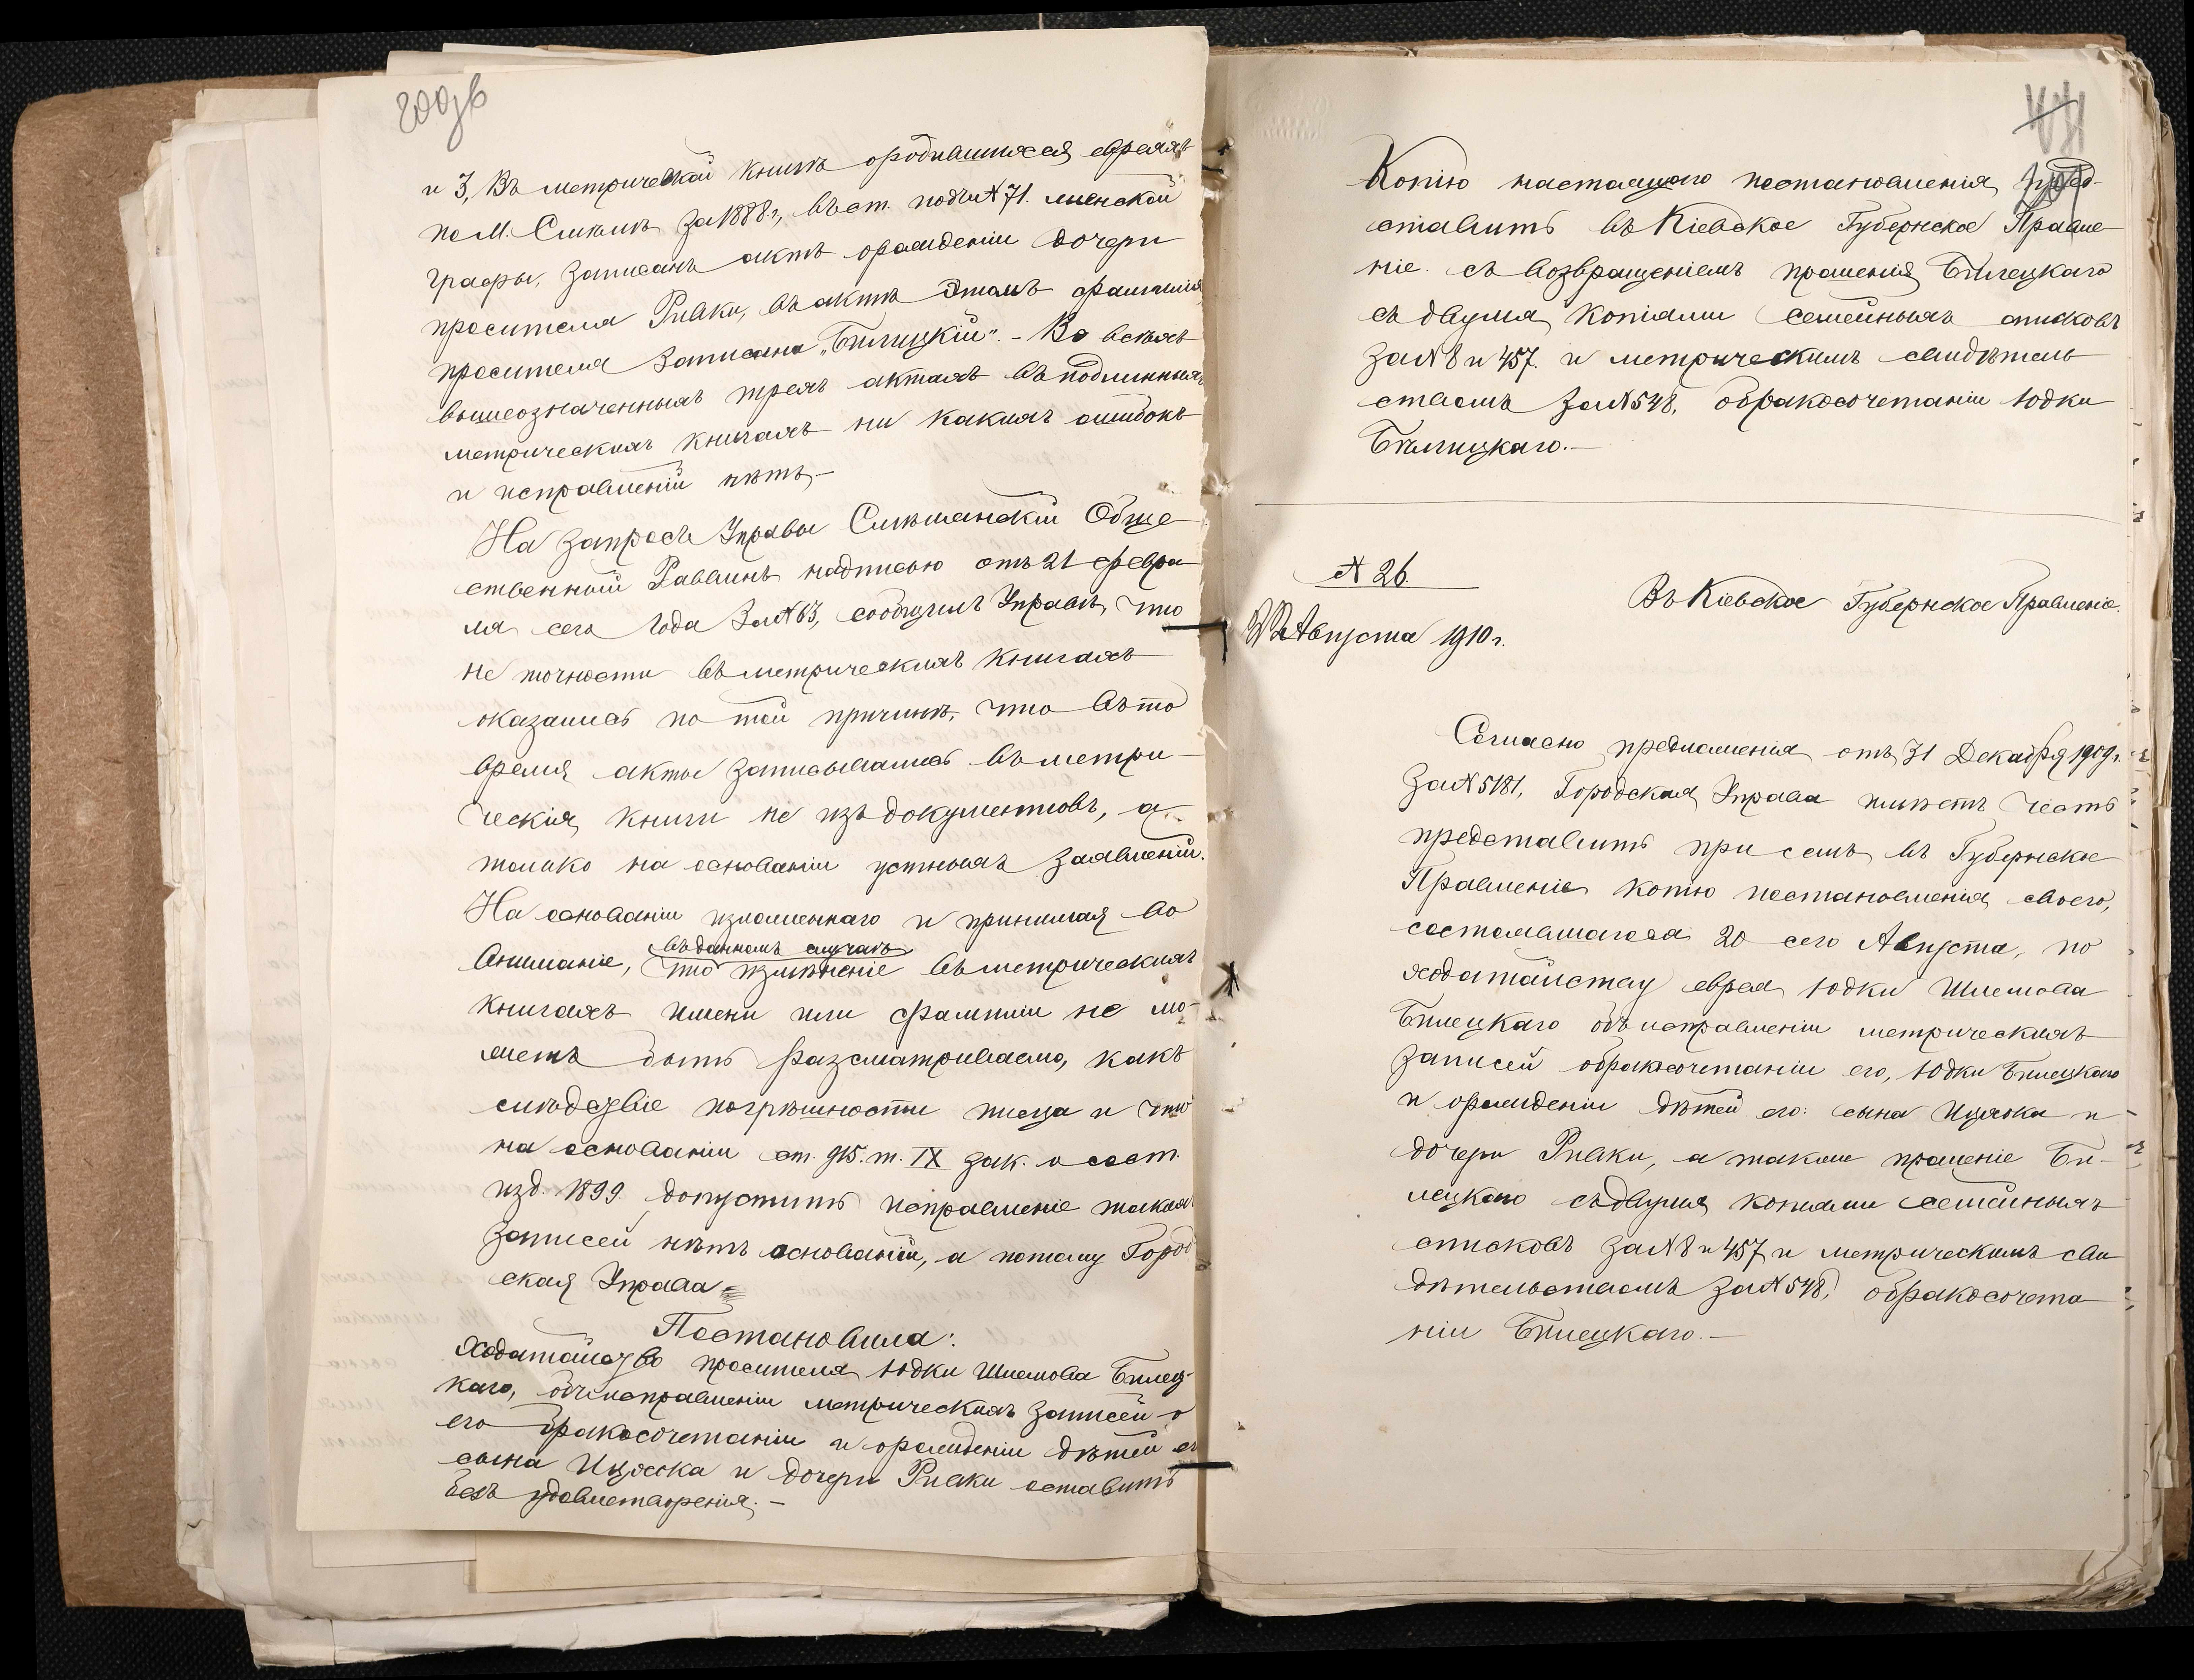 200 об
и 3, Въ метрической книгѣ о родившихся евреяхъ
по М. Смѣлѣ за 1888 г., въ ст. подъ № 71. женской
графы, записанъ актъ о рожденіи дочери
просителя Ривки, въ актѣ этомъ фамилія
просителя записана „Бѣлицкій". - Во всѣхъ
вышеозначенныхъ трехъ актахъ въ подлинныхъ
метрическихъ книгахъ ни какихъ ошибокъ
и исправленій нѣтъ. -
На запросъ Управы Смѣлянскій Обще-
ственный Раввинъ надписью отъ 21 февра-
ля сего года за № 63, сообщилъ Управѣ, что
не точности въ метрическихъ книгахъ
оказались по той причинѣ, что въ то
время акты записывались въ метри-
ческія книги не изъ документовъ, а
только на основаніи устныхъ заявленій.
На основаніи изложеннаго и принимая во
въ данномъ случаѣ
вниманіе, что измѣненіе въ метрическихъ
книгахъ имени или фамиліи не мо-
жетъ быть разсматриваемо, какъ
слѣдствіе погрѣшности писца и что
на основаніи ст. 915. т. IX зак. о сост.
изд. 1899. допустить исправленіе такихъ
записей нѣтъ основаній, а потому Город-
ская Управа
Постановила:
Ходатайство просителя Юдки Шлемова Билец-
каго, объ исправленіи метрическихъ записей о
его бракосочетаніи и о рожденіи дѣтей его
сына Ицхока и дочери Ривки оставить
безъ удовлетворенія. -
Копію настоящаго постановленія пред-
ставить въ Кіевское Губернское Правле-
ніе съ возвращеніемъ прошенія Билецкаго
съ двумя копіями семейныхъ списковъ
за № 8 и 457. и метрическимъ свидѣтель-
ствомъ за № 548, о бракосочетаніи Юдки
Бѣлицкаго. -
№ 26.
Августа 1910 г.
Въ Кіевское Губернское Правленіе.
Согласно предложенія отъ 31 Декабря 1909 г.
за № 5181, Городская Управа имѣетъ честь
представить при семъ въ Губернское
Правленіе копію постановленія своего,
состоявшагося 20 сего Августа, по
ходатайству еврея Юдки Шлемова
Билецкаго объ исправленіи метрическихъ
записей о бракосочетаніи его, Юдки Билецкаго
и о рожденіи дѣтей его: сына Ицхока и
дочери Ривки, а также прошеніе Би-
лецкаго съ двумя копіями семейныхъ
списковъ за № 8 и 457 и метрическимъ сви-
дѣтельствомъ за № 548, о бракосочета-
ніи Билецкаго. -